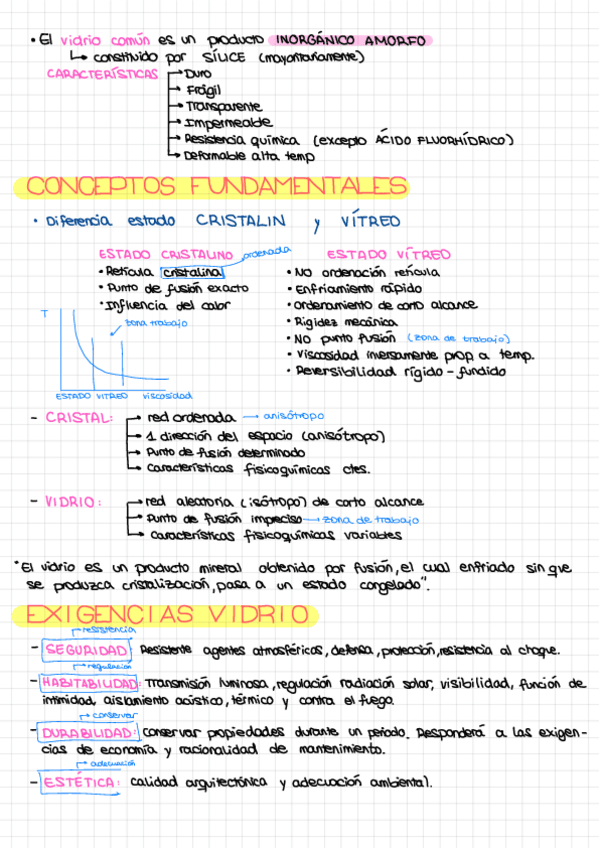 • El vidrio común es un producto INORGÁNICO AMORFO
↳ constituido por SÍLICE (mayoritariamente)
CARACTERÍSTICAS → Duro
→ Frágil
→ Transparente
→ Impermeable
→ Resistencia química (excepto ÁCIDO FLUORHÍDRICO)
→ Deformable alta temp
CONCEPTOS FUNDAMENTALES
• Diferencia estado CRISTALIN y VÍTREO
ESTADO CRISTALINO ordenada
• Retícula cristalina
• Punto de fusión exacto
• Influencia del calor
T
zona trabajo
ESTADO VITREO viscosidad
ESTADO VÍTREO
• NO ordenación retícula
• Enfriamiento rápido
• Ordenamiento de corto alcance
• Rigidez mecánica
• NO punto fusión (zona de trabajo)
• Viscosidad inversamente prop a temp.
• Reversibilidad rígido - fundido
- CRISTAL: → red ordenada → anisótropo
→ 1 dirección del espacio (anisótropo)
→ Punto de fusión determinado
→ Características fisicoquímicas ctes.
- VIDRIO: → red aleatoria (isótropo) de corto alcance
→ Punto de fusión impreciso → zona de trabajo
→ Características fisicoquímicas variables
"El vidrio es un producto mineral obtenido por fusión, el cual enfriado sin que
se produzca cristalización, pasa a un estado congelado".
EXIGENCIAS VIDRIO
→ resistencia
- SEGURIDAD: Resistente agentes atmosféricos, defensa, protección, resistencia al choque.
→ regulación
- HABITABILIDAD: Transmisión luminosa, regulación radiación solar, visibilidad, función de
intimidad, aislamiento acústico, térmico y contra el fuego.
→ conservar
- DURABILIDAD: conservar propiedades durante un periodo. Responderá a las exigen-
cias de economía y racionalidad de mantenimiento.
→ adecuación
- ESTÉTICA: calidad arquitectónica y adecuación ambiental.